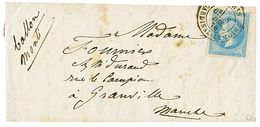 Ballon
monté
Madame
Fournier
rue le Campion
à Granville
Manche